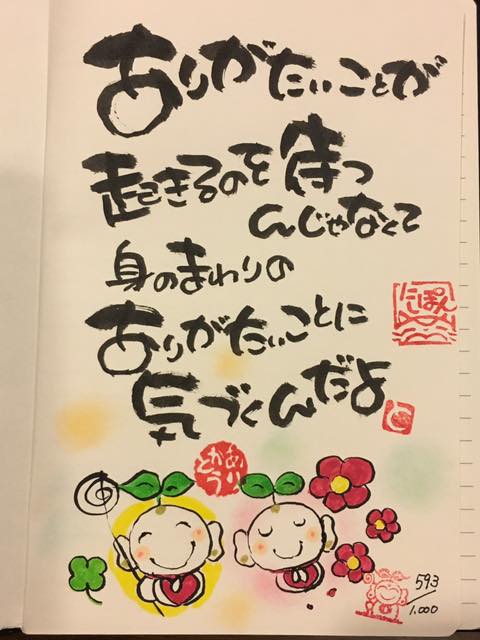 ありがたいことが
起きるのを待つ
んじゃなくて
身のまわりの
ありがたいことに
気づくんだよ
にっぽん
ありがとう
593
1.000